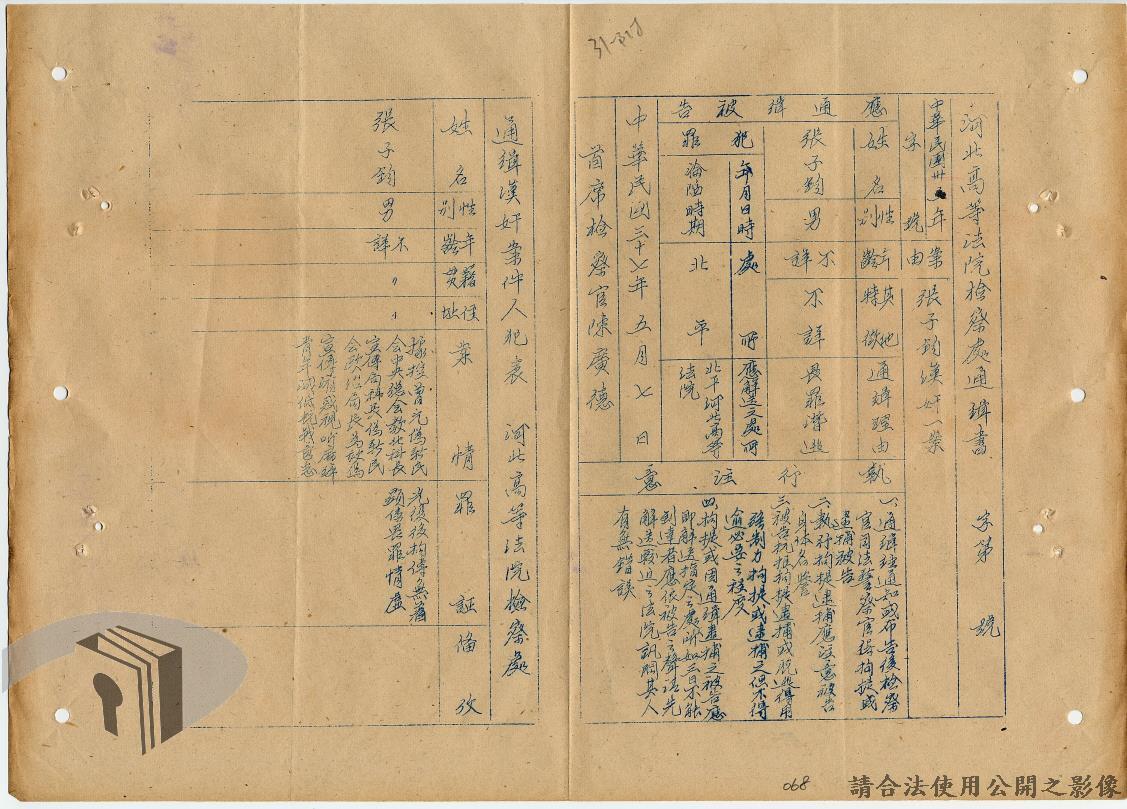 31-318
河北高等法院檢察處通緝書　字第　號
中華民國卅　年
字　號
案由
張子鈞漢奸一案
應通緝被告
姓名
性別
年齡
其他特徵
通緝理由
張子鈞
男
不詳
不詳
畏罪潛逃
犯罪
年月日時
處所
應解送之處所
淪陷時期
北平
北平河北高等法院
執行注意
一、通緝經通知或布告後檢察
官司法警察官得拘提或
逕捕被告
二、執行拘提逮捕應注意被告
身体名譽
三、被告抗拒拘提逮捕或脫逃得用
強制力拘提或逮捕之但不得
逾必要之程度
四、拘提或因通緝逮捕之被告應
即解送指定之處所如三日不能
到達者應依被告之聲請先
解送較近之法院訊問其人
有無錯誤
中華民國三十七年五月七日
首席檢察官陳廣德
通緝漢奸案件人犯表　河北高等法院檢察處
姓名
性別
年齡
籍貫
住址
案情
罪証
備攷
張子鈞
男
不詳
〃
〃
據控曾充偽新民
會中央總會教化科長
宣傳局科長偽新民
會政治局長為敵偽
宣傳
青年
光復後拘傳無着
顯係畏罪情虛
068
請合法使用公開之影像